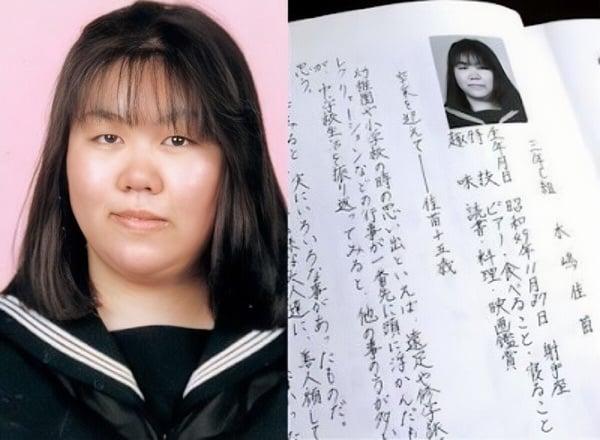 三年C組　木嶋佳苗
生年月日　昭和49年11月27日　射手座
特技　ピアノ・食べること・寝ること
趣味　読書・料理・映画鑑賞
卒業を迎えて――佳苗十五歳
幼稚園や小学校の時の思い出といえば、遠足や修学旅
レクリェーションなどの行事が一番先に頭に浮かんだも
が、中学校生活を振り返ってみると、他の事のほうが多
思う。
みると、実にいろいろな事があったものだ。
友人達に、